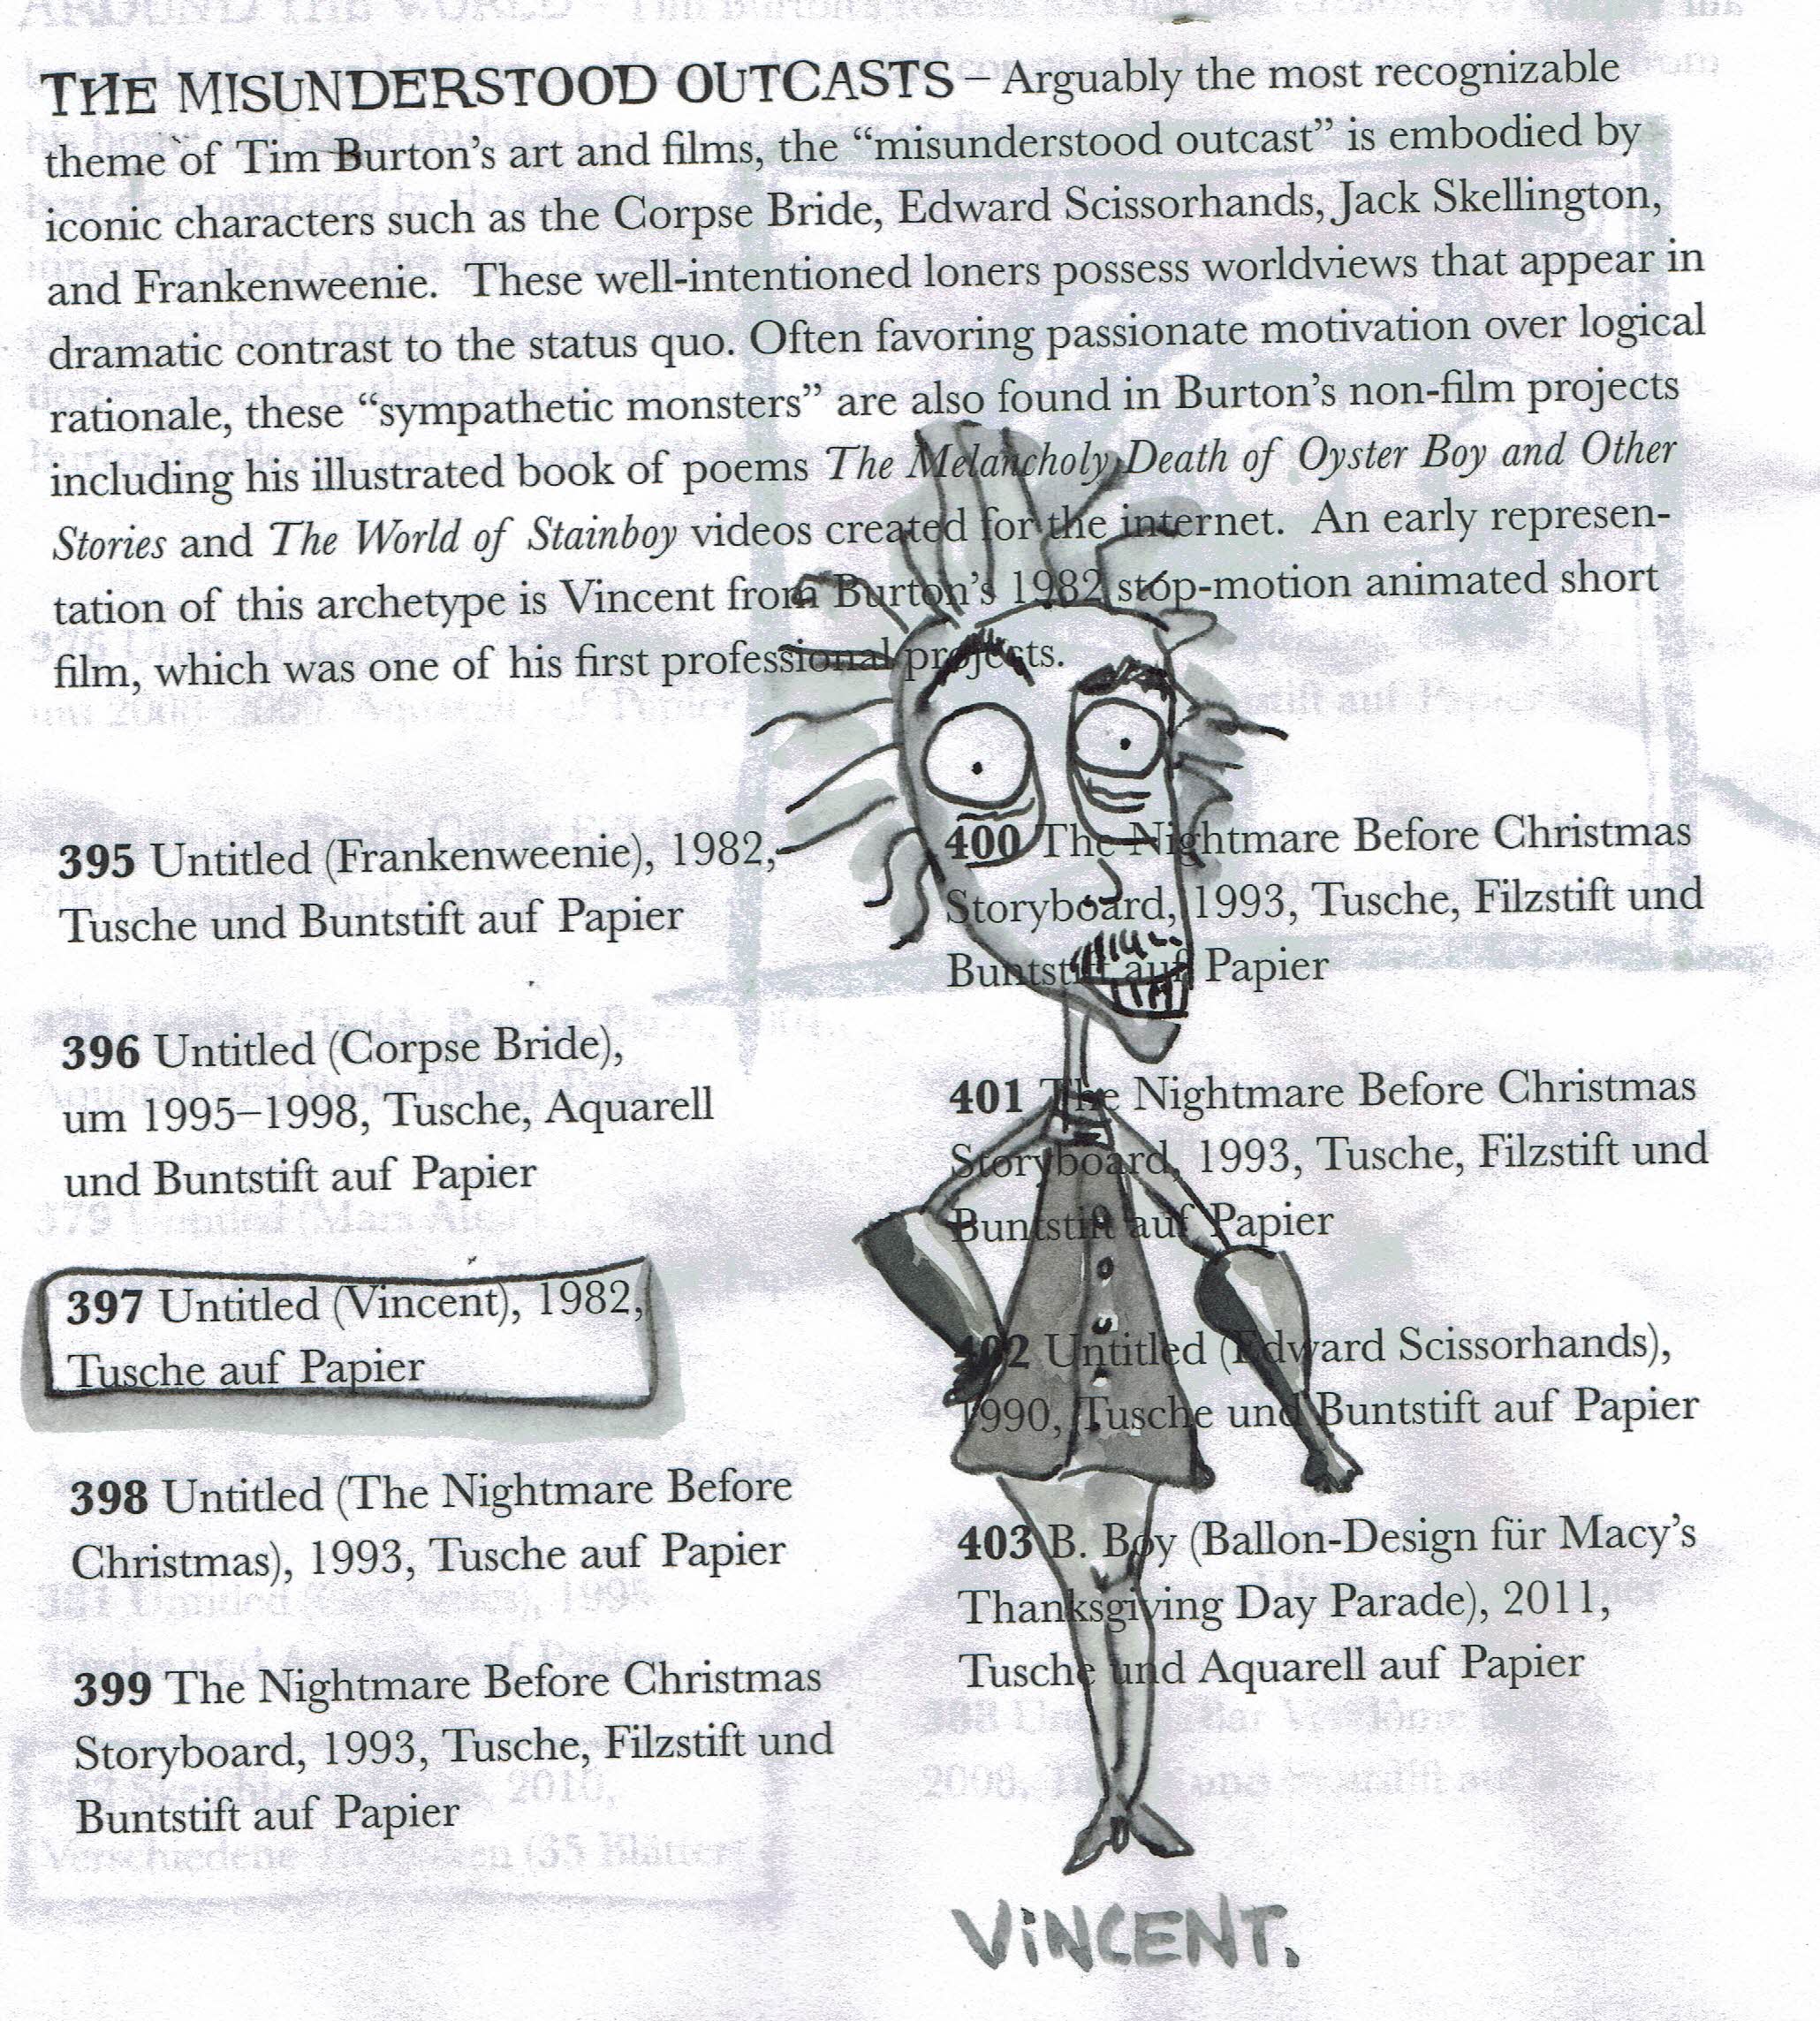 THE MISUNDERSTOOD OUTCASTS – Arguably the most recognizable
theme of Tim Burton's art and films, the “misunderstood outcast” is embodied by
iconic characters such as the Corpse Bride, Edward Scissorhands, Jack Skellington,
and Frankenweenie. These well-intentioned loners possess worldviews that appear in
dramatic contrast to the status quo. Often favoring passionate motivation over logical
rationale, these “sympathetic monsters” are also found in Burton's non-film projects
including his illustrated book of poems The Melancholy Death of Oyster Boy and Other
Stories and The World of Stainboy videos created for the internet. An early represen-
tation of this archetype is Vincent from Burton's 1982 stop-motion animated short
film, which was one of his first professional projects.
395 Untitled (Frankenweenie), 1982,
Tusche und Buntstift auf Papier
396 Untitled (Corpse Bride),
um 1995–1998, Tusche, Aquarell
und Buntstift auf Papier
397 Untitled (Vincent), 1982,
Tusche auf Papier
398 Untitled (The Nightmare Before
Christmas), 1993, Tusche auf Papier
399 The Nightmare Before Christmas
Storyboard, 1993, Tusche, Filzstift und
Buntstift auf Papier
400 The Nightmare Before Christmas
Storyboard, 1993, Tusche, Filzstift und
Buntstift auf Papier
401 The Nightmare Before Christmas
Storyboard, 1993, Tusche, Filzstift und
Buntstift auf Papier
402 Untitled (Edward Scissorhands),
1990, Tusche und Buntstift auf Papier
403 B. Boy (Ballon-Design für Macy's
Thanksgiving Day Parade), 2011,
Tusche und Aquarell auf Papier
ViNCENT.